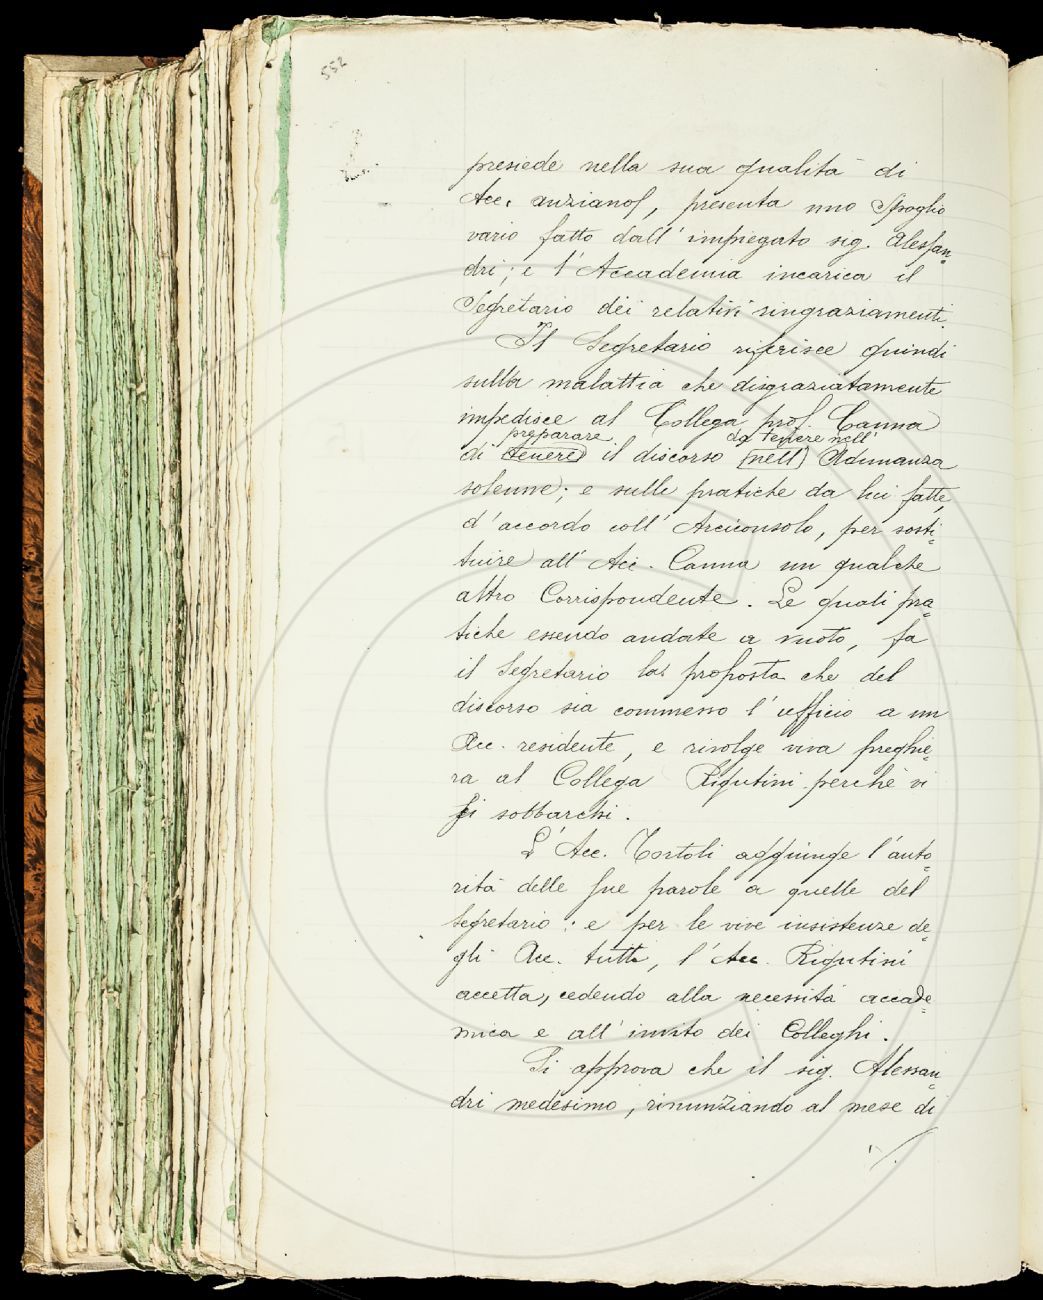 552
presiede nella sua qualità di
Acc. anziano, presenta uno Spoglio
vario fatto dall'impiegato sig. Alessan=
dri; e l'Accademia incarica il
Segretario dei relativi ringraziamenti.
Il Segretario riferisce quindi
sulla malattia che disgraziatamente
impedisce al Collega prof. Canna
preparare da tenere nell'
di (tenere) il discorso (nell') Adunanza
solenne; e sulle pratiche da lui fatte,
d'accordo coll'Arciconsolo, per sosti=
tuire all'Acc. Canna un qualche
altro Corrispondente. Le quali pra=
tiche essendo andate a vuoto, fa
il Segretario la proposta che del
discorso sia commesso l'ufficio a un
Acc. residente, e rivolge viva preghie=
ra al Collega Rigutini perchè vi
si sobbarchi.
L'Acc. Tortoli aggiunge l'auto=
rità delle sue parole a quelle del
Segretario: e per le vive insistenze de=
gli Acc. tutti, l'Acc. Rigutini
accetta, cedendo alla necessità accade
mica e all'invito dei Colleghi.
Si approva che il sig. Alessan=
dri medesimo, rinunziando al mese di